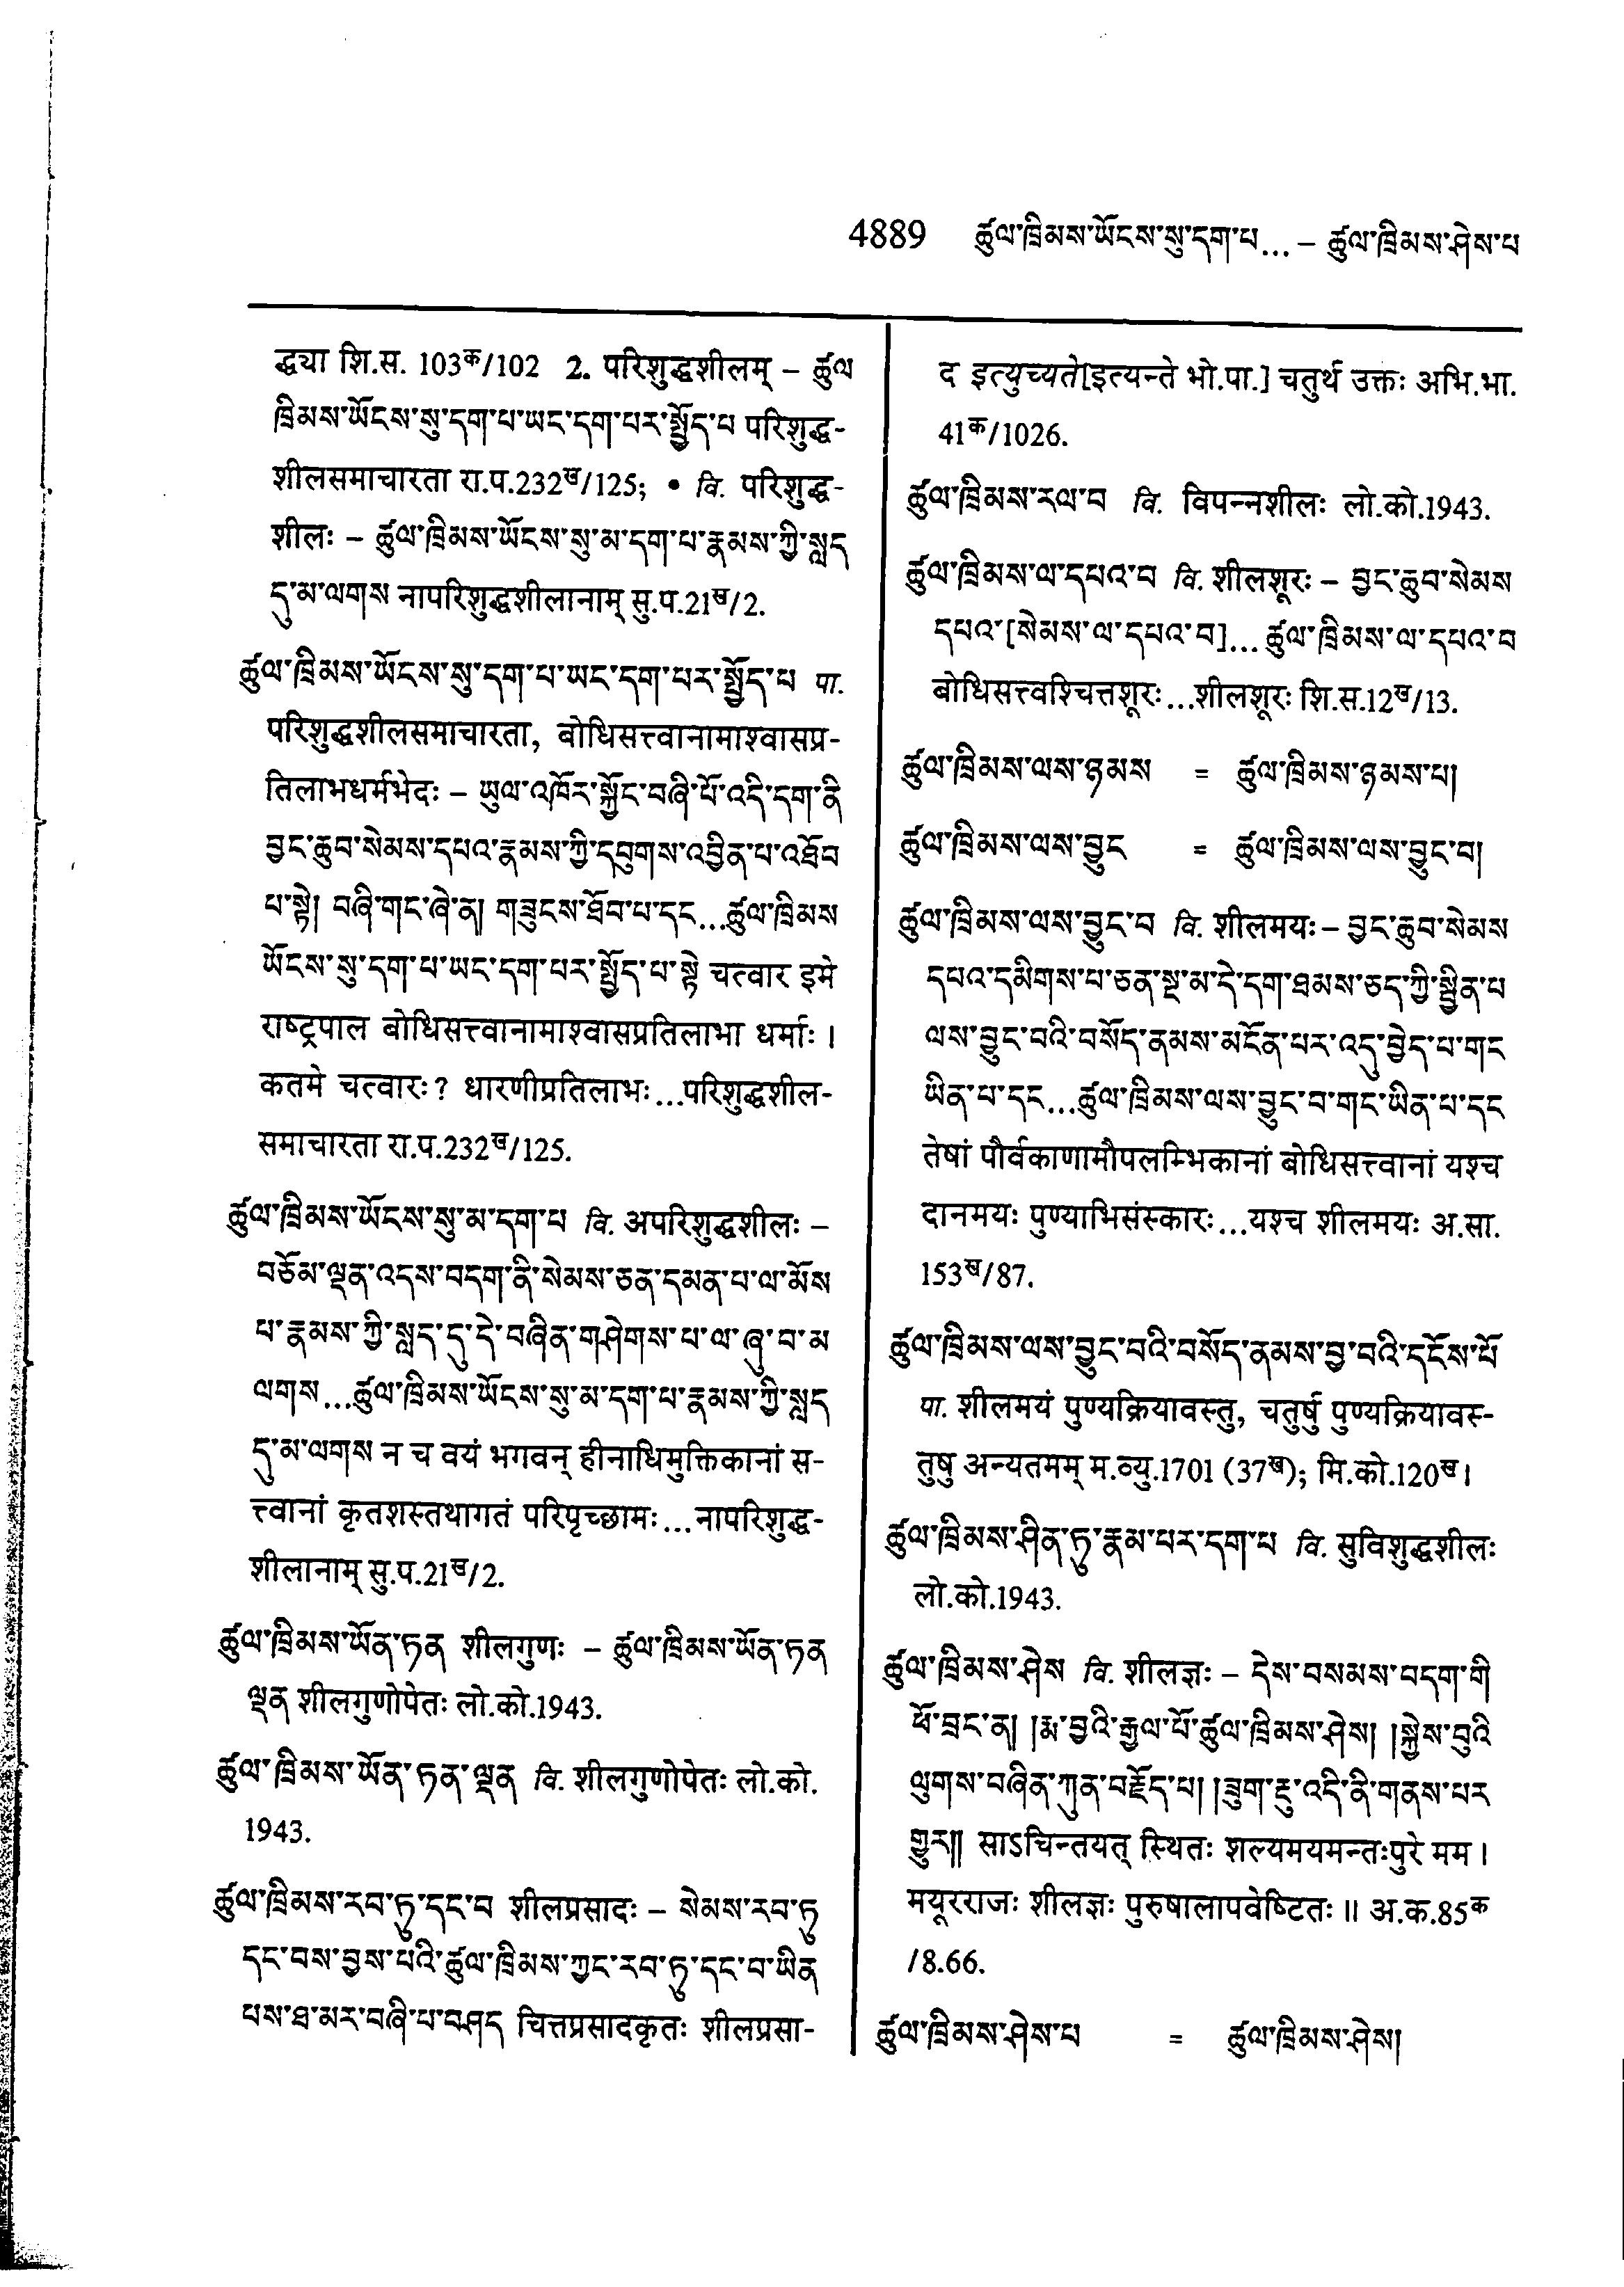 4889 ཚུལ་ཁྲིམས་ཡོངས་སུ་དག་པ... – ཚུལ་ཁྲིམས་ཤེས་པ
द्ध्या शि.स. 103क/102 2. परिशुद्धशीलम् – ཚུལ
ཁྲིམས་ཡོངས་སུ་དག་པ་ཡང་དག་པར་སྤྱོད་པ परिशुद्ध-
शीलसमाचारता रा.प.232ख/125; • वि. परिशुद्ध-
शीलः – ཚུལ་ཁྲིམས་ཡོངས་སུ་མ་དག་པ་རྣམས་ཀྱི་སླད
དུ་མ་ལགས नापरिशुद्धशीलानाम् सु.प.21ख/2.
ཚུལ་ཁྲིམས་ཡོངས་སུ་དག་པ་ཡང་དག་པར་སྤྱོད་པ पा.
परिशुद्धशीलसमाचारता, बोधिसत्त्वानामाश्वासप्र-
तिलाभधर्मभेदः – ཡུལ་འཁོར་སྐྱོང་བཞི་པོ་འདི་དག་ནི
བྱང་ཆུབ་སེམས་དཔའ་རྣམས་ཀྱི་དབུགས་འབྱིན་པ་འཐོབ
པ་སྟེ། བཞི་གང་ཞེ་ན། གཟུངས་ཐོབ་པ་དང...ཚུལ་ཁྲིམས
ཡོངས་སུ་དག་པ་ཡང་དག་པར་སྤྱོད་པ་སྟེ चत्वार इमे
राष्ट्रपाल बोधिसत्त्वानामाश्वासप्रतिलाभा धर्माः ।
कतमे चत्वारः? धारणीप्रतिलाभः...परिशुद्धशील-
समाचारता रा.प.232ख/125.
ཚུལ་ཁྲིམས་ཡོངས་སུ་མ་དག་པ वि. अपरिशुद्धशीलः –
བཅོམ་ལྡན་འདས་བདག་ནི་སེམས་ཅན་དམན་པ་ལ་མོས
པ་རྣམས་ཀྱི་སླད་དུ་དེ་བཞིན་གཤེགས་པ་ལ་ཞུ་བ་མ
ལགས...ཚུལ་ཁྲིམས་ཡོངས་སུ་མ་དག་པ་རྣམས་ཀྱི་སླད
དུ་མ་ལགས न च वयं भगवन् हीनाधिमुक्तिकानां स-
त्त्वानां कृतशस्तथागतं परिपृच्छामः...नापरिशुद्ध-
शीलानाम् सु.प.21ख/2.
ཚུལ་ཁྲིམས་ཡོན་ཏན शीलगुणः – ཚུལ་ཁྲིམས་ཡོན་ཏན
ལྡན शीलगुणोपेतः लो.को.1943.
ཚུལ་ཁྲིམས་ཡོན་ཏན་ལྡན वि. शीलगुणोपेतः लो.को.
1943.
ཚུལ་ཁྲིམས་རབ་ཏུ་དང་བ शीलप्रसादः – སེམས་རབ་ཏུ
དང་བས་བྱས་པའི་ཚུལ་ཁྲིམས་ཀྱང་རབ་ཏུ་དང་བ་ཡིན
པས་ཐ་མར་བཞི་པ་བཤད चित्तप्रसादकृतः शीलप्रसा-
द इत्युच्यते[इत्यन्ते भो.पा.] चतुर्थ उक्तः अभि.भा.
41क/1026.
ཚུལ་ཁྲིམས་རལ་བ वि. विपन्नशीलः लो.को.1943.
ཚུལ་ཁྲིམས་ལ་དཔའ་བ वि. शीलशूरः – བྱང་ཆུབ་སེམས
དཔའ་[སེམས་ལ་དཔའ་བ]...ཚུལ་ཁྲིམས་ལ་དཔའ་བ
बोधिसत्त्वश्चित्तशूरः...शीलशूरः शि.स.12ख/13.
ཚུལ་ཁྲིམས་ལས་ཉམས = ཚུལ་ཁྲིམས་ཉམས་པ།
ཚུལ་ཁྲིམས་ལས་བྱུང = ཚུལ་ཁྲིམས་ལས་བྱུང་བ།
ཚུལ་ཁྲིམས་ལས་བྱུང་བ वि. शीलमयः – བྱང་ཆུབ་སེམས
དཔའ་དམིགས་པ་ཅན་སྔ་མ་དེ་དག་ཐམས་ཅད་ཀྱི་སྦྱིན་པ
ལས་བྱུང་བའི་བསོད་ནམས་མངོན་པར་འདུ་བྱེད་པ་གང
ཡིན་པ་དང...ཚུལ་ཁྲིམས་ལས་བྱུང་བ་གང་ཡིན་པ་དང
तेषां पौर्वकाणामौपलम्भिकानां बोधिसत्त्वानां यश्च
दानमयः पुण्याभिसंस्कारः...यश्च शीलमयः अ.सा.
153ख/87.
ཚུལ་ཁྲིམས་ལས་བྱུང་བའི་བསོད་ནམས་བྱ་བའི་དངོས་པོ
पा. शीलमयं पुण्यक्रियावस्तु, चतुर्षु पुण्यक्रियावस्-
तुषु अन्यतमम् म.व्यु.1701 (37ख); मि.को.120ख।
ཚུལ་ཁྲིམས་ཤིན་ཏུ་རྣམ་པར་དག་པ वि. सुविशुद्धशीलः
लो.को.1943.
ཚུལ་ཁྲིམས་ཤེས वि. शीलज्ञः – དེས་བསམས་བདག་གི
ཕོ་བྲང་ན། །རྨ་བྱའི་རྒྱལ་པོ་ཚུལ་ཁྲིམས་ཤེས། །སྐྱེས་བུའི
ལུགས་བཞིན་ཀུན་བརྗོད་པ། །ཟུག་རྔུ་འདི་ནི་གནས་པར
གྱུར།། साऽचिन्तयत् स्थितः शल्यमयमन्तःपुरे मम ।
मयूरराजः शीलज्ञः पुरुषालापवेष्टितः ॥ अ.क.85क
/8.66.
ཚུལ་ཁྲིམས་ཤེས་པ = ཚུལ་ཁྲིམས་ཤེས།